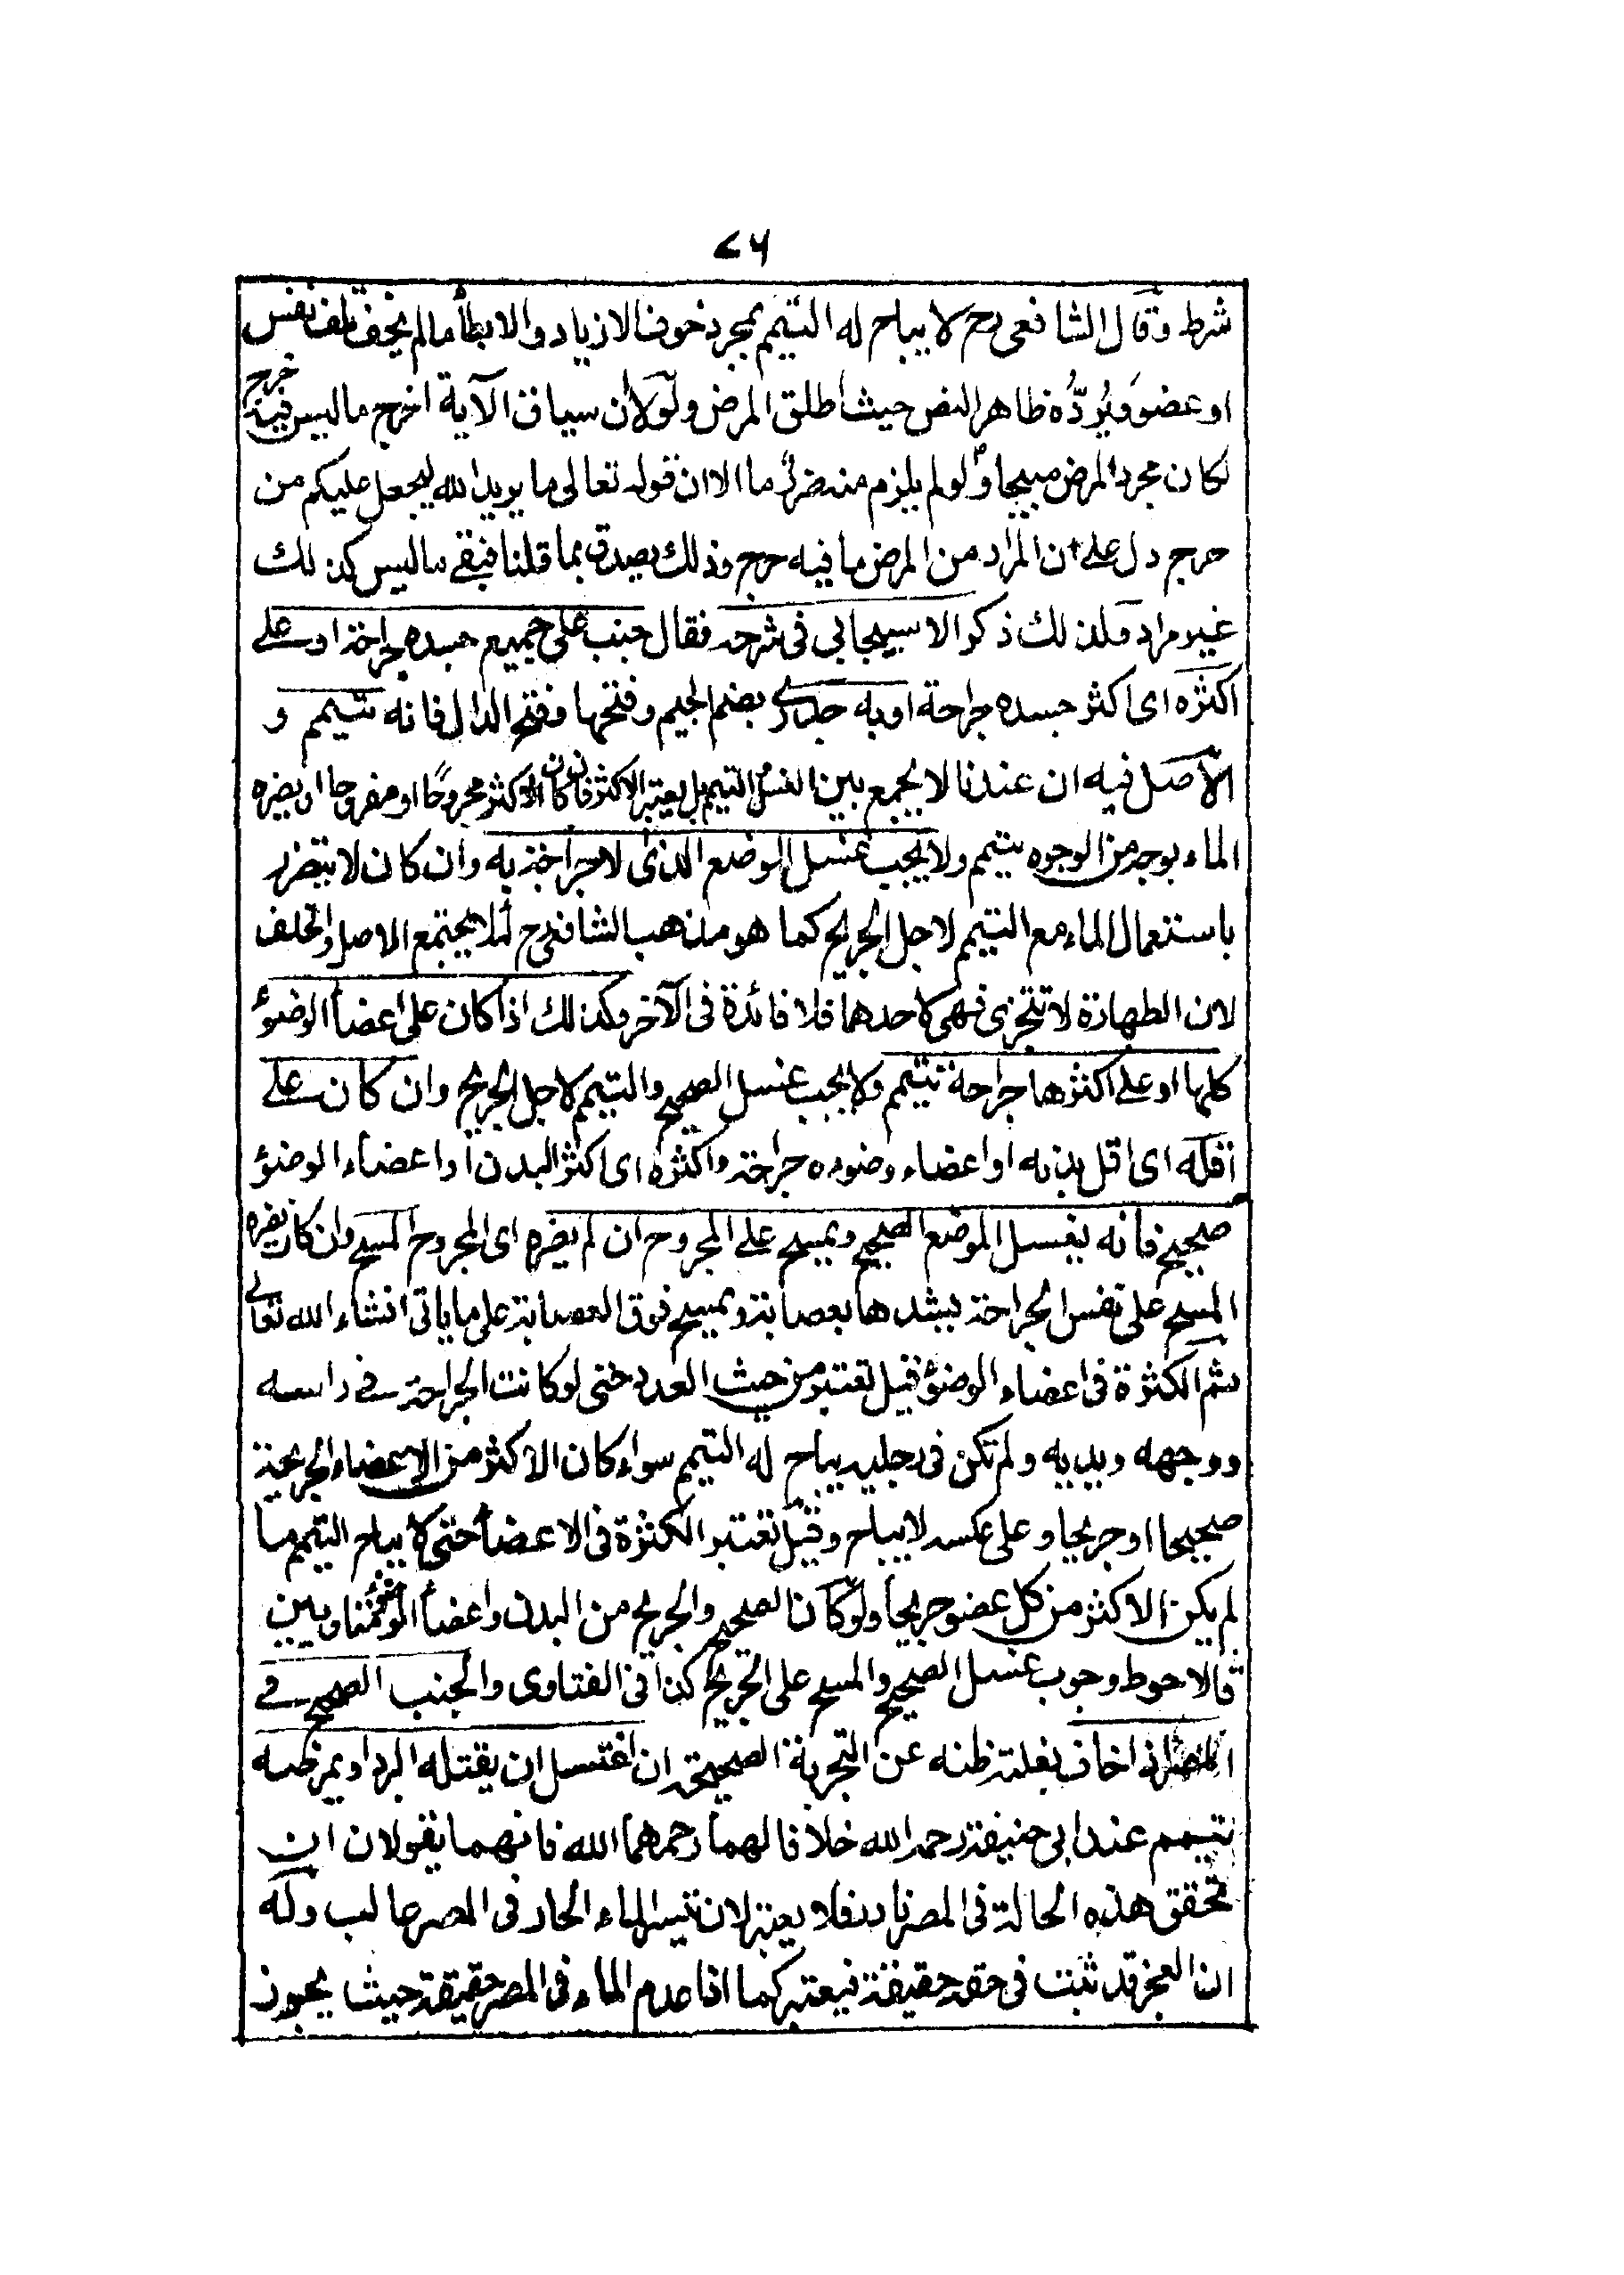 ٧٦
شرط وقال الشافعى رح لا يباح له التيمم بمجرد خوف الازدياد والابطأ مالم يخف تلف نفس
او عضو ويردّه ظاهر النص حيث اطلق المرض ولولا ان سياق الآية اخرج ما ليس فيه حرج
لكان مجرد المرض مبيحا ولو لم يلزم منه ضرر ما الا ان قوله تعالى ما يريد الله ليجعل عليكم من
حرج دل على ان المراد من المرض ما فيه حرج وذلك يصدق بما قلنا فبقى ما ليس كذلك
غير مراد ولذلك ذكر الاسبيجابى فى شرحه فقال جنب على جميع جسده جراحة او على
اكثره اى اكثر جسده جراحة او به جدرى بضم الجيم وفتحها وفتح الدال فانه يتيمم و
الاصل فيه ان عندنا لا يجمع بين الغسل والتيمم بل يعتبر الاكثر فان كان الاكثر مجروحًا او مقروحا او يضره
الماء بوجه من الوجوه يتيمم ولا يجب غسل الموضع الذى لا جراحة به وان كان لا يتضرر
باستعمال الماء مع التيمم لاجل الجريح كما هو مذهب الشافعى رح لئلا يجتمع الاصل والخلف
لان الطهارة لا تتجزى فهى كاحدهما فلا فائدة فى الآخر وكذلك اذا كان على اعضأ الوضوء
كلها او على اكثرها جراحة يتيمم ولا يجب غسل الصحيح والتيمم لاجل الجريح وان كان على
اقله اى اقل بدنه او اعضاء وضوءه جراحة واكثره اى اكثر البدن او اعضاء الوضوء
صحيح فانه يغسل الموضع الصحيح ويمسح على المجروح ان لم يضره اى المجروح المسح وان كان يضره
المسح على نفس الجراحة يشدها بعصابة ويمسح فوق العصابة على ما ياتى انشاء الله تعالى
ثم الكثرة فى اعضاء الوضوء قيل تعتبر من حيث العدد حتى لو كانت الجراحة فى راسه
ووجهه ويديه ولم تكن فى رجليه يباح له التيمم سواء كان الاكثر من الاعضاء الجريحة
صحيحا او جريحا وعلى عكسه لا يباح وقيل تعتبر الكثرة فى الاعضأ حتى لا يباح التيمم ما
لم يكن الاكثر من كل عضو جريحا ولو كان الصحيح والجريح من البدن واعضأ الوضوء متساويين
فالاحوط وجوب غسل الصحيح والمسح على الجريح كذا فى الفتاوى والجنب الصحيح فى
المصر اذا خاف بغلبة ظنه عن التجربة الصحيحة ان اغتسل ان يقتله البرد او يمرضه
يتيمم عند ابى حنيفة رحمه الله خلافا لهما رحمهما الله فانهما يقولان ان
تحقق هذه الحالة فى المصر نادر فلا يعتبر لان تيسر الماء الحار فى المصر غالب وله
ان العجز قد ثبت فى حقه حقيقة فيعتبر كما اذا عدم الماء فى المصر حقيقة حيث يجوز